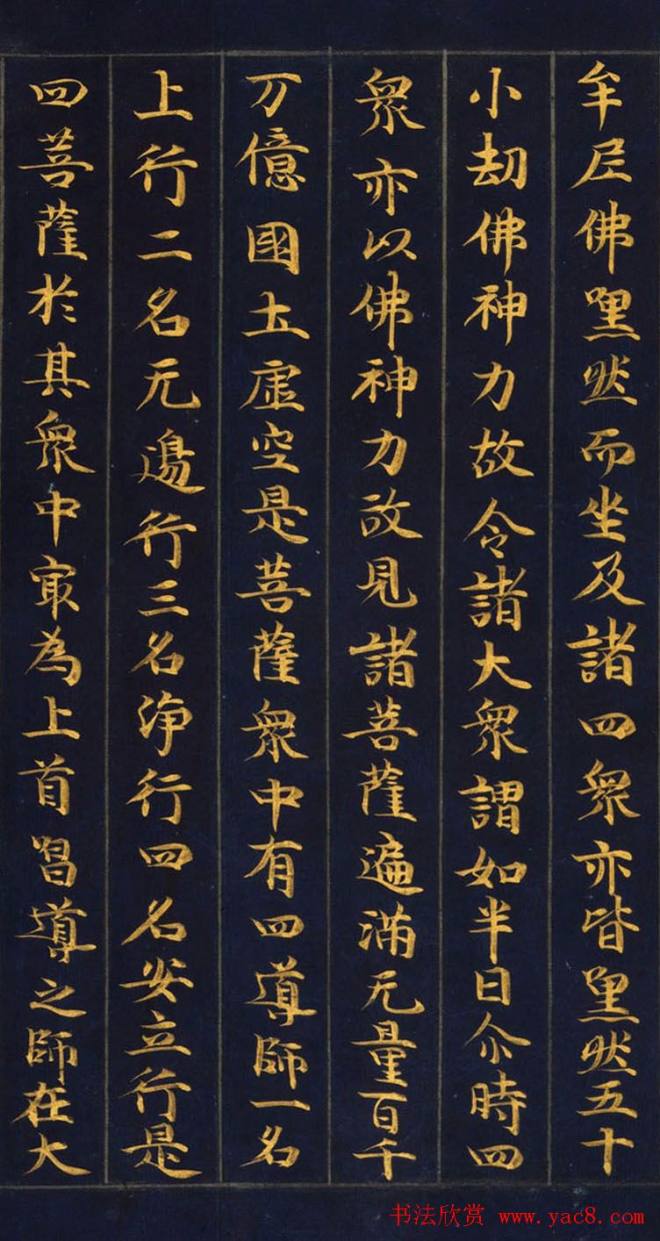 牟尼佛嘿然而坐及諸四衆亦皆嘿然五十
小劫佛神力故令諸大衆謂如半日尒時四
衆亦以佛神力故見諸菩薩遍滿无量百千
万億國土虛空是菩薩衆中有四導師一名
上行二名无邊行三名淨行四名安立行是
四菩薩於其衆中冣為上首昌導之師在大
书法欣赏 www.yac8.com